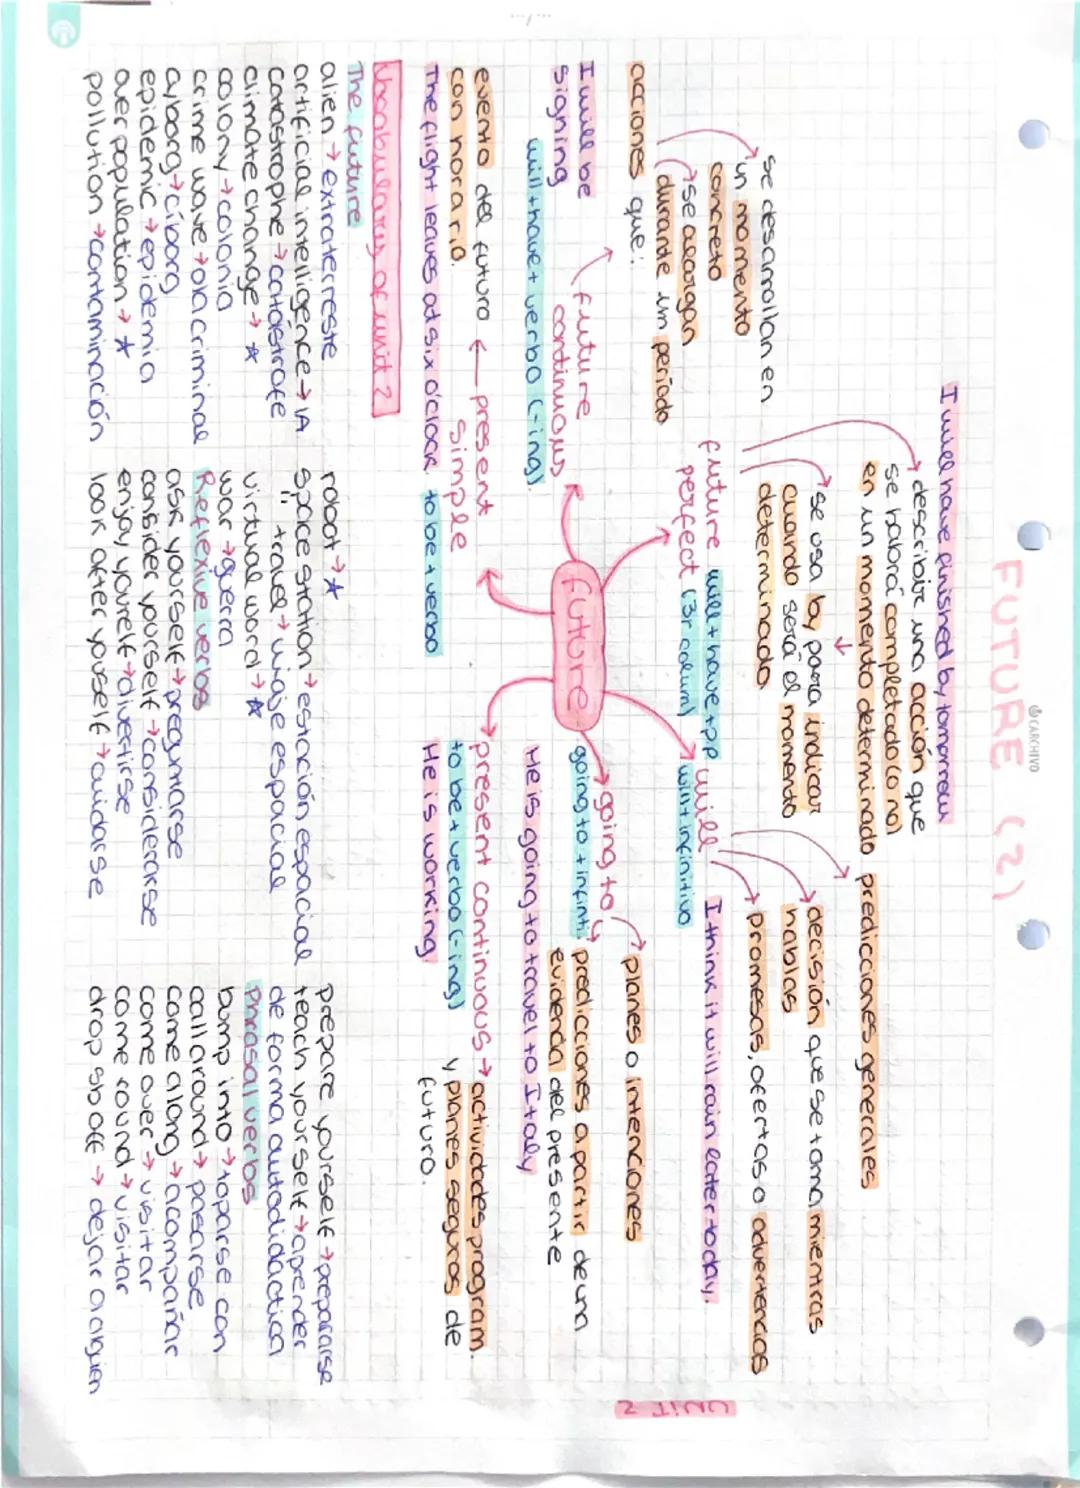 CARCHIVO
FUTURE (2)
UNIT 2
I will have finished by tomorrow
describir una acción que
se habrá completado (o no)
en un momento determinado
se usa by para indicar
cuando será el momento
determinado
future perfect
will + have + pp
(3r colum)
se desarrollan en
un momento
concreto
se alargan
durante un período
acciones que:
future
continuous
I will be
signing
will + have + verbo (-ing).
predicciones generales
decisión que se toma mientras
hablas
promesas, ofertas o advertencias
will
will + infinitivo
I think it will rain later today.
future
going to
going to + infiniti.
planes o intenciones
predicciones a partir de una
evidencia del presente
He is going to travel to Italy
present
simple
evento del futuro
con horario.
The flight leaves at six o'clock.
to be + verbo
present continuous → actividades program.
y planes seguros de
futuro.
to be + verbo (-ing)
He is working.
Vocabulary of unit 2
The future
alien → extraterreste
artificial intelligence → IA
catastrophe → catástrofe
climate change → ☆
colony → colonia
crime wave → ola criminal
cyborg → cíborg
epidemic → epidemia
overpopulation → ☆
pollution → contaminación
robot → ☆
space station → estación espacial
" travel → viaje espacial
virtual word → ☆
war → guerra
Reflexive verbs
ask yourself → preguntarse
consider yourself → considerarse
enjoy yourself → divertirse
look after youself → cuidarse
prepare yourself → prepararse
teach yourself → aprender
de forma autodidáctica
Phrasal verbs
bump into → toparse con
call around → pasarse
come along → acompañar
come over → visitar
come round → visitar
drop sb off → dejar a alguien